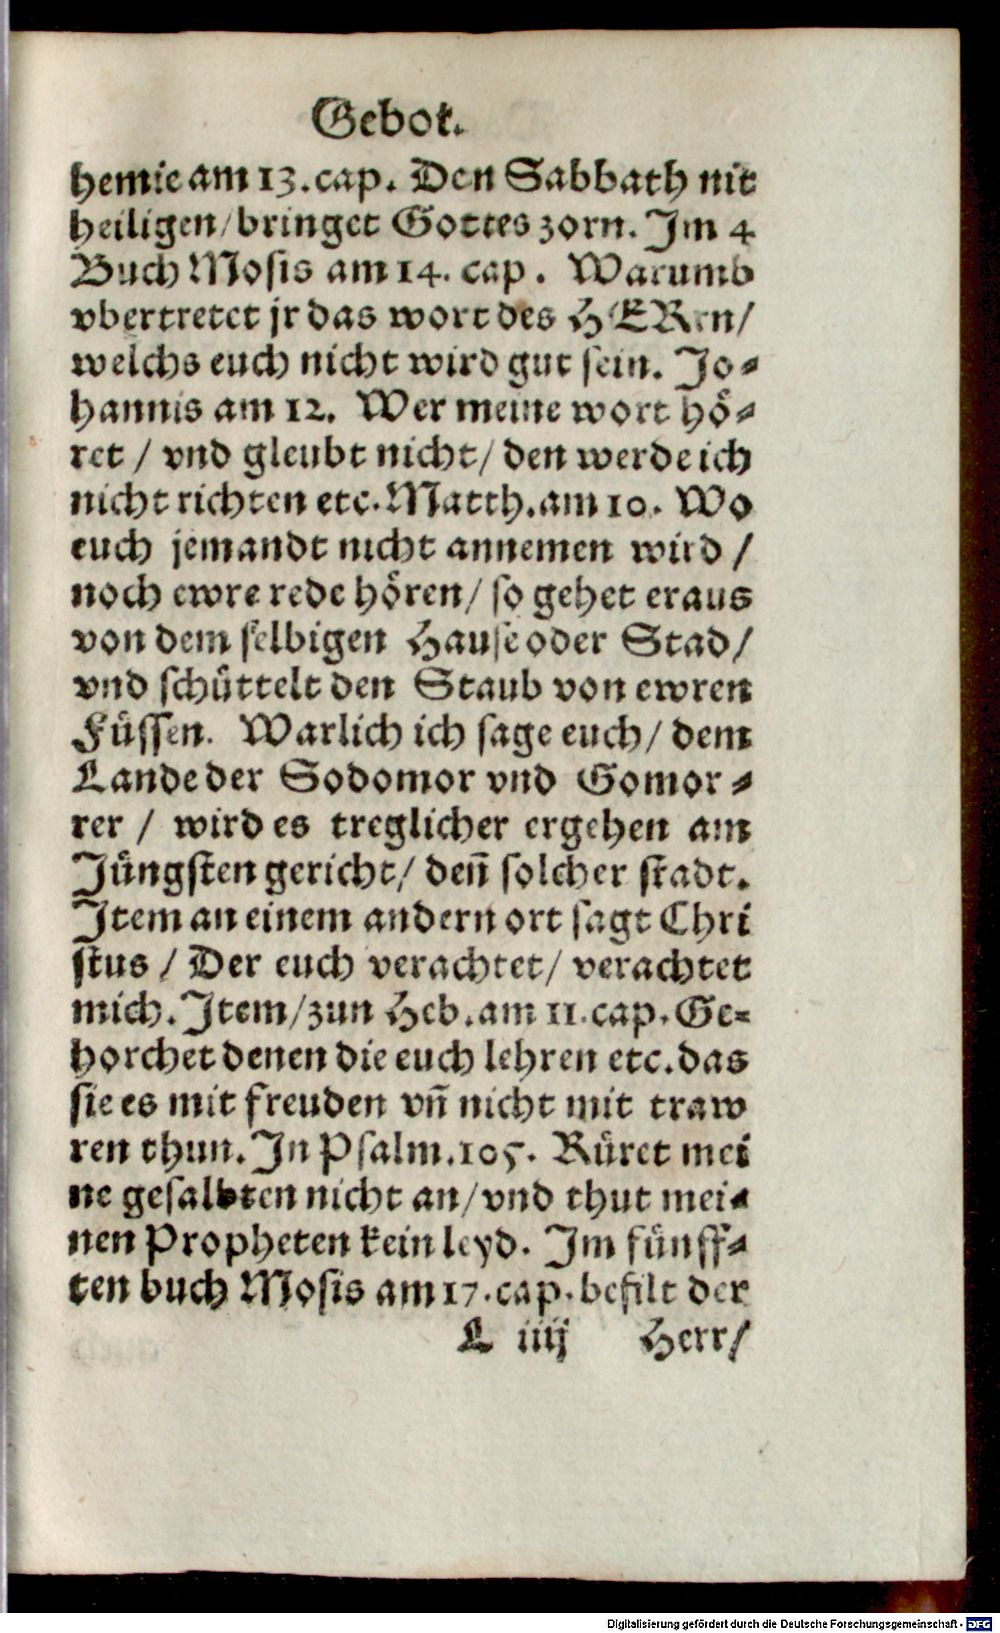 Gebot.
hemie am 13. cap. Den Sabbath nit
heiligen/bringet Gottes zorn. Im 4
Buch Mosis am 14. cap. Warumb
vbertretet jr das wort des HERrn/
welchs euch nicht wird gut sein. Jo-
hannis am 12. Wer meine wort hö-
ret / vnd gleubt nicht/ den werde ich
nicht richten etc. Matth. am 10. Wo
euch jemandt nicht annemen wird /
noch ewre rede hören/ so gehet eraus
von dem selbigen Hause oder Stad/
vnd schüttelt den Staub von ewren
Füssen. Warlich ich sage euch/ dem
Lande der Sodomor vnd Gomor-
rer / wird es treglicher ergehen am
Jüngsten gericht/ deñ solcher stadt.
Item an einem andern ort sagt Chri
stus / Der euch verachtet/ verachtet
mich. Item/zun Heb. am 11. cap. Ge-
horchet denen die euch lehren etc. das
sie es mit freuden vñ nicht mit traw
ren thun. In Psalm. 105. Rüret mei
ne gesalbten nicht an/vnd thut mei-
nen Propheten kein leyd. Im fünff-
ten buch Mosis am 17. cap. befilt der
L iiij Herr/
Digitalisierung gefördert durch die Deutsche Forschungsgemeinschaft - DFG